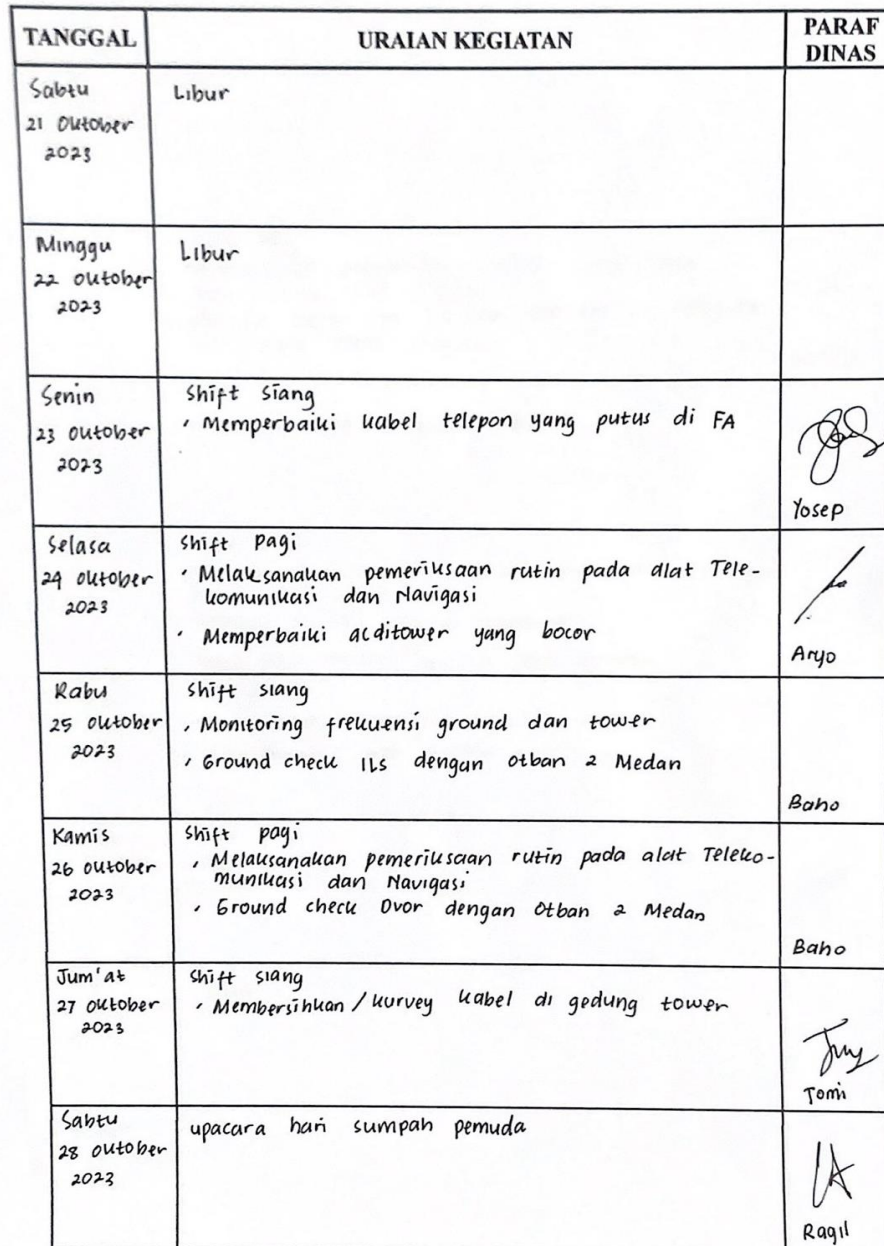 TANGGAL
URAIAN KEGIATAN
PARAF
DINAS
Sabtu
21 Oktober
2023
Libur
Minggu
22 oktober
2023
Libur
Senin
23 oktober
2023
Shift Siang
Memperbaiki kabel telepon yang putus di FA
Yosep
Selasa
24 oktober
2023
Shift Pagi
· Melaksanakan pemeriksaan rutin pada alat Tele-
komunikasi dan Navigasi
· Memperbaiki acditower yang bocor
Aryo
Rabu
25 oktober
2023
Shift siang
, Monitoring frekuensi ground dan tower
, Ground check ILS dengan otban 2 Medan
Baho
Kamis
26 oktober
2023
Shift pagi
, Melaksanakan pemeriksaan rutin pada alat Teleko-
munikasi dan Navigasi
, Ground check Dvor dengan Otban 2 Medan
Baho
Jum'at
27 oktober
2023
Shift siang
, Membersihkan / kurvey kabel di gedung tower
Tomi
Sabtu
28 oktober
2023
upacara hari sumpah pemuda
Ragil